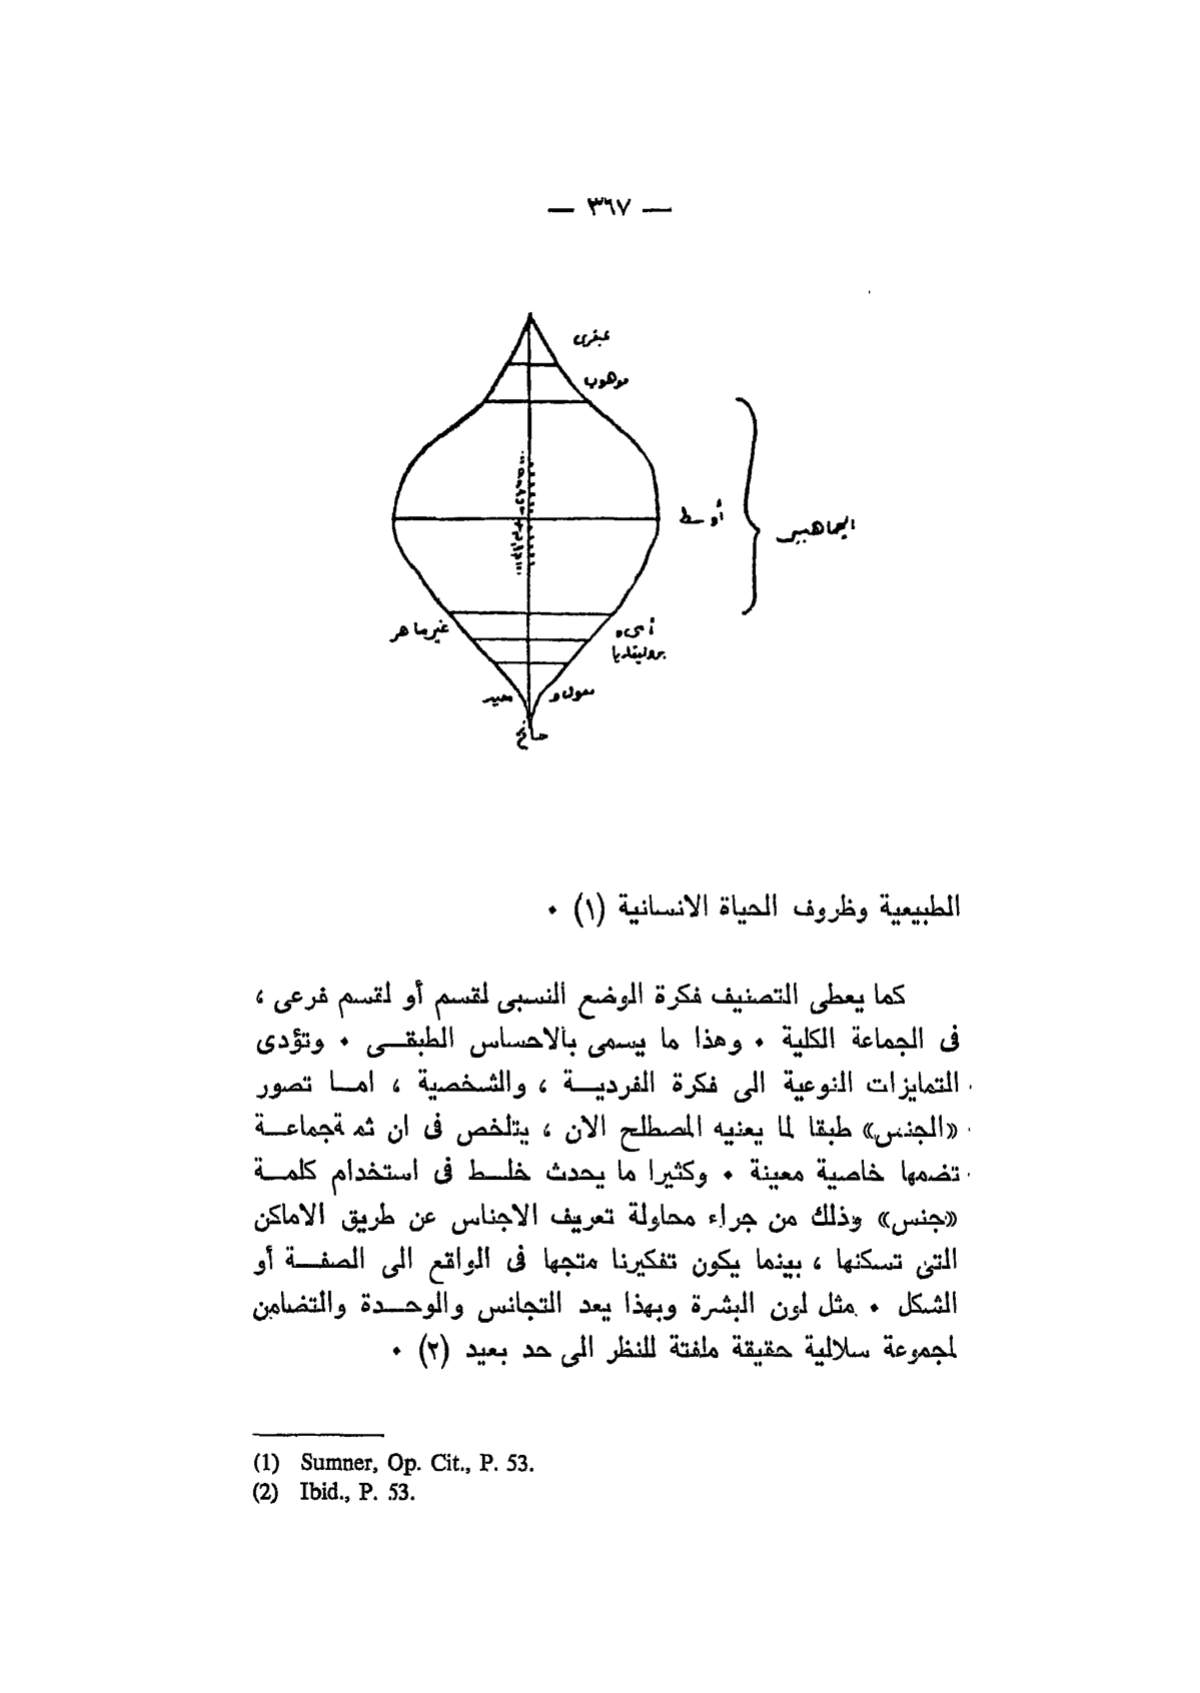 — ٣٦٧ —
عبقرى
موهوب
أوسط
الجماهير
غير ماهر
أمى
بروليتاريا
الطبيعية وظروف الحياة الانسانية (١) ٠
كما يعطى التصنيف فكرة الوضع النسبى لقسم أو لقسم فرعى ،
فى الجماعة الكلية ٠ وهذا ما يسمى بالاحساس الطبقــى ٠ وتؤدى
التمايزات النوعية الى فكرة الفرديــة ، والشخصية ، امــا تصور
«الجنس» طبقا لما يعنيه المصطلح الان ، يتلخص فى ان ثمة جماعــة
تضمها خاصية معينة ٠ وكثيرا ما يحدث خلــط فى استخدام كلمــة
«جنس» وذلك من جراء محاولة تعريف الاجناس عن طريق الاماكن
التى تسكنها ، بينما يكون تفكيرنا متجها فى الواقع الى الصفــة أو
الشكل ٠ مثل لون البشرة وبهذا يعد التجانس والوحــدة والتضامن
لمجموعة سلالية حقيقة ملفتة للنظر الى حد بعيد (٢) ٠
(1) Sumner, Op. Cit., P. 53.
(2) Ibid., P. 53.